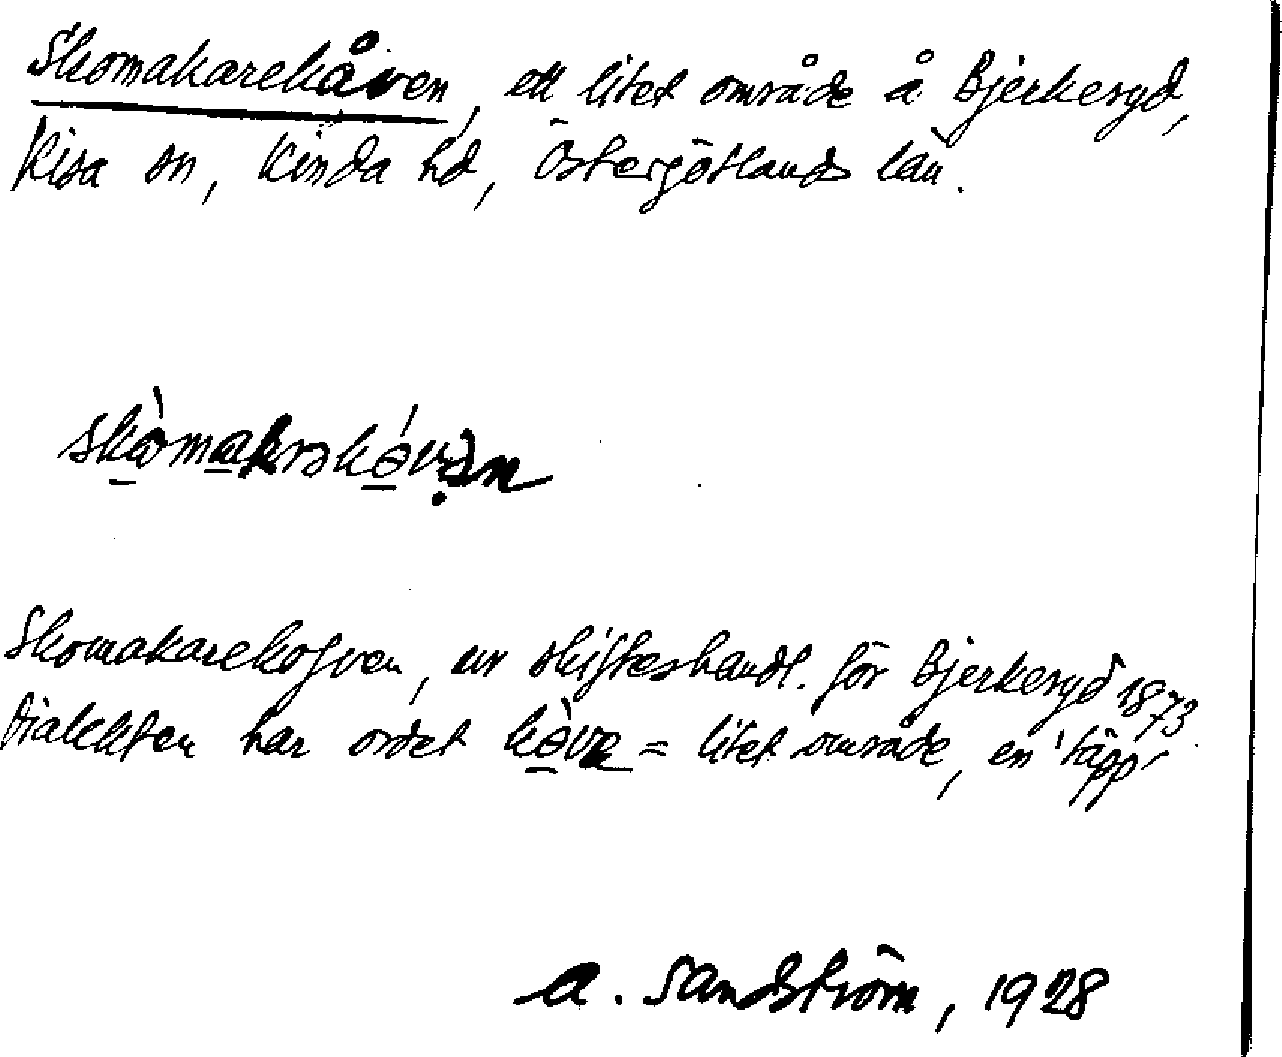 Skomakarekåven, ett litet område å Bjerkeryd,
Kisa sn, Kinda hd, Östergötlands län.
skòmakrəkóvən
Skomakarekofven, ur skifteshandl. för Bjerkeryd 1873
Dialekten har ordet kòva = litet område, en 'täpp'
A. Sandström, 1928